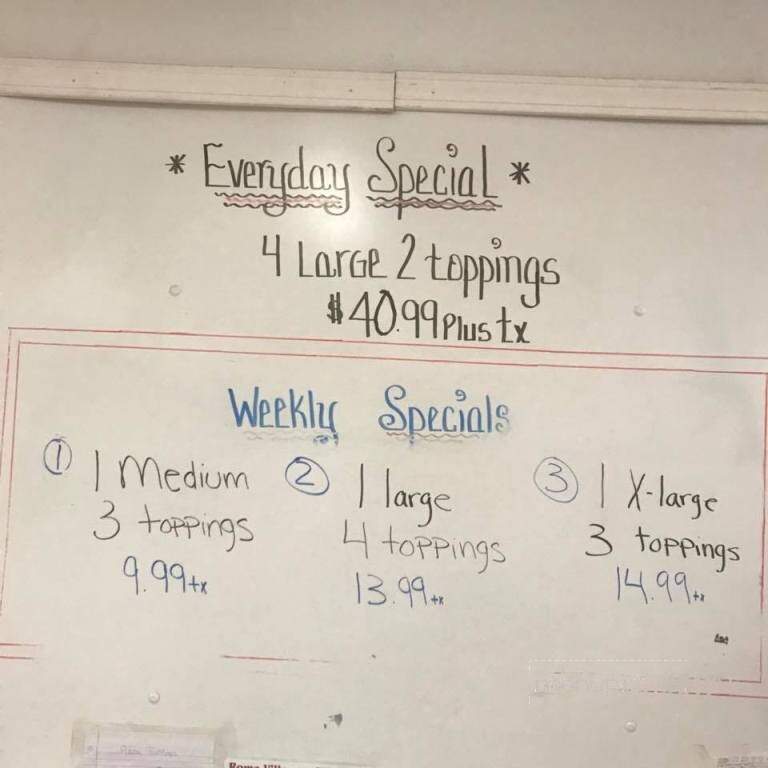 * Everyday Special *
4 Large 2 toppings
$40.99 Plus tx
Weekly Specials
① 1 Medium
3 toppings
9.99+x
② 1 large
4 toppings
13.99+x
③ 1 X-large
3 toppings
14.99+x